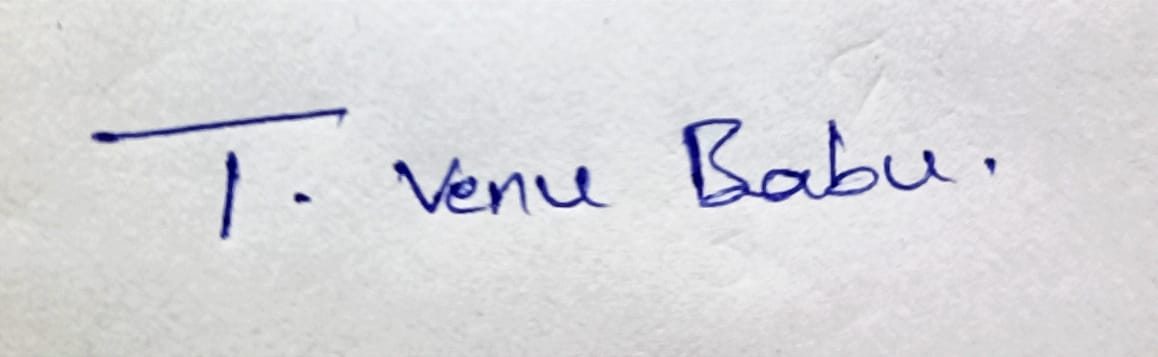 T. Venu Babu.